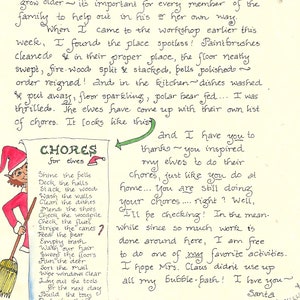 grow older ~ it's important for every member of the
family to help out in his & her own way.
When I came to the workshop earlier this
week, I found the place spotless! Paintbrushes
cleaned & in their proper place, the floor neatly
swept, fire-wood split & stacked, bells polished ~
order reigned! And in the kitchen ~ dishes washed
& put away, floor sparkling, polar bear fed... I was
thrilled. The elves have come up with their own list
of chores. It looks like this:
CHORES
for elves
Shine the bells
Deck the halls
Stack the wood
Wash the walls
Clean the dishes
Mend the shoes
Check the woodpile
Check the flues
Stripe the canes
Feed the bear
Empty trash
Wash our hair
Sweep the floors
Pan the dirt
Sort the mail
Wipe window clear
Lay out the tools
for the next day
Build the toys
And I have you to
thanks ~ you inspired
my elves to do their
chores just like you do at
home... You are still doing
your chores.... right? Well,
I'll be checking! In the mean-
while since so much work is
done around here, I am free
to do one of my favorite activities.
I hope Mrs. Claus didn't use up
all my bubble-bath! I love you~
Santa